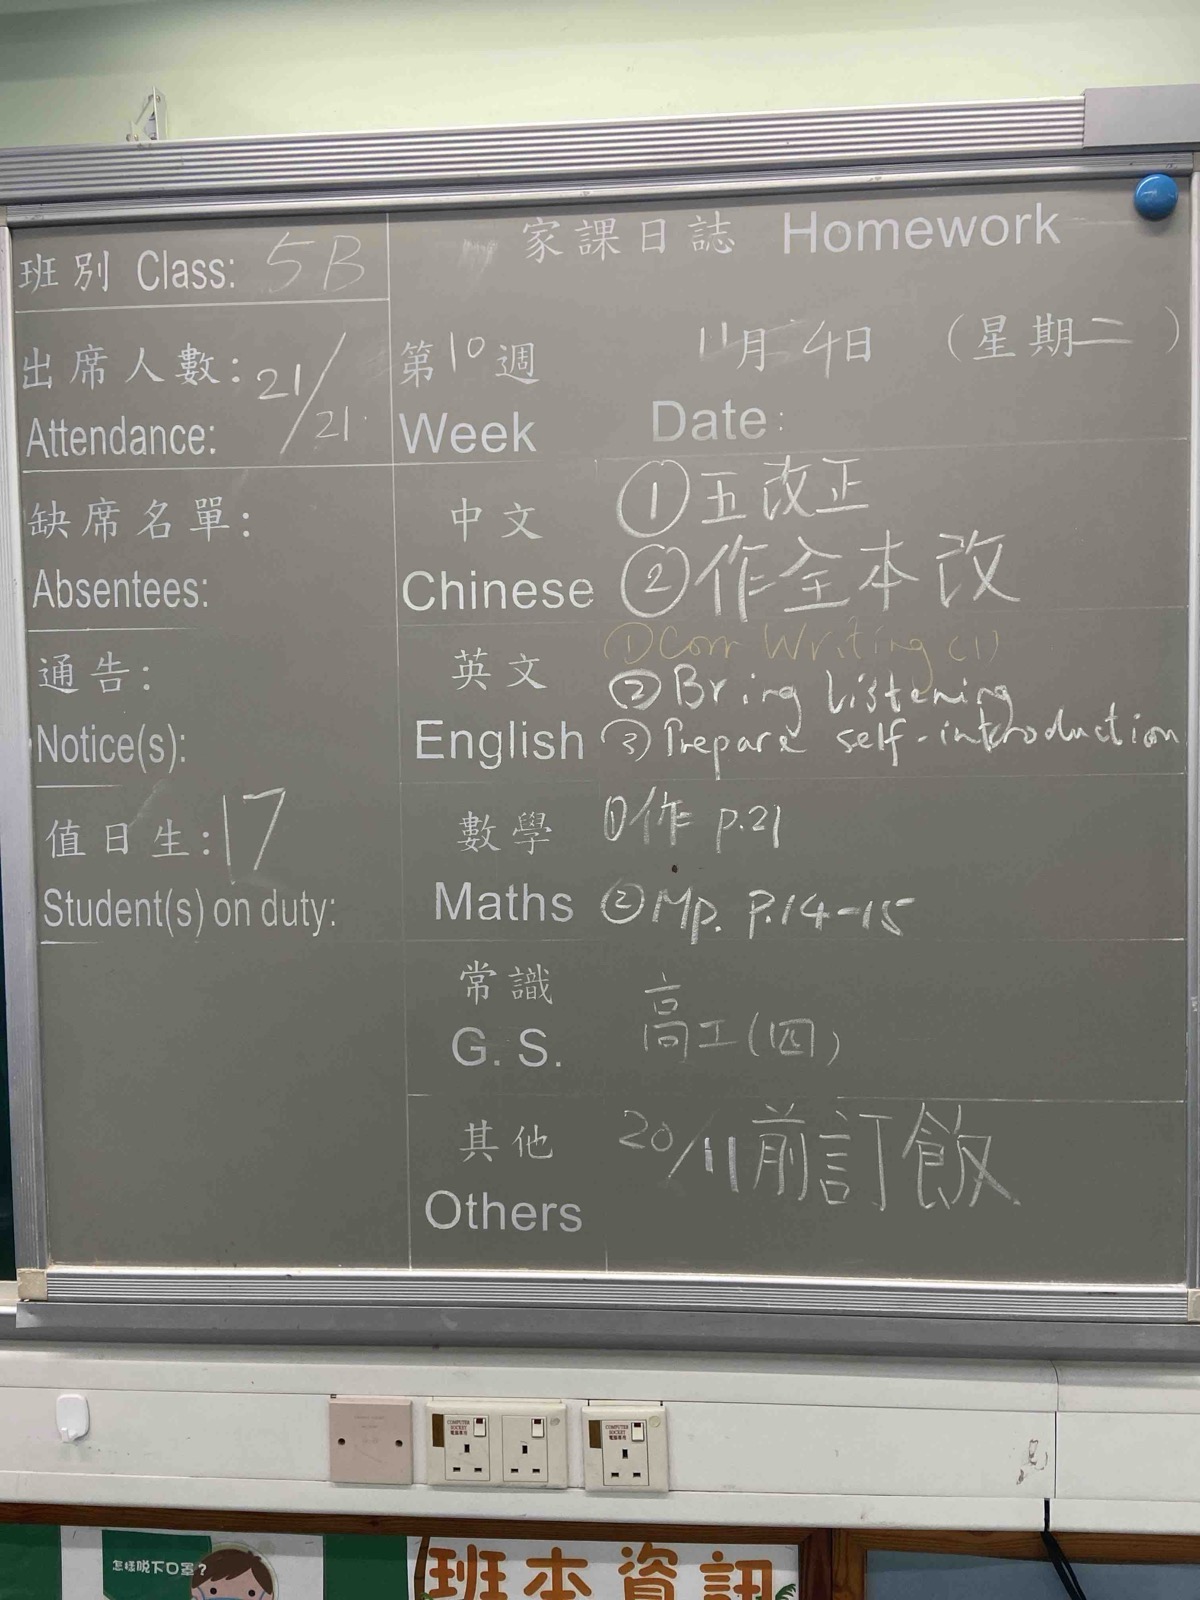 家課日誌 Homework
班別 Class: 5B
出席人數: 21/21
Attendance:
第10週
Week
11月4日 (星期二)
Date:
缺席名單:
Absentees:
中文
Chinese
①五改正
②作全本改
通告:
Notice(s):
英文
English
①Corr Writing (1)
②Bring listening
③Prepare self-introduction
值日生: 17
Student(s) on duty:
數學
Maths
①作 p.21
②Mp. P.14-15
常識
G. S.
高工(四)
其他
Others
20/11前訂飯
COMPUTER SOCKET
電腦專用
COMPUTER SOCKET
電腦專用
怎樣脫下口罩?
班本資訊